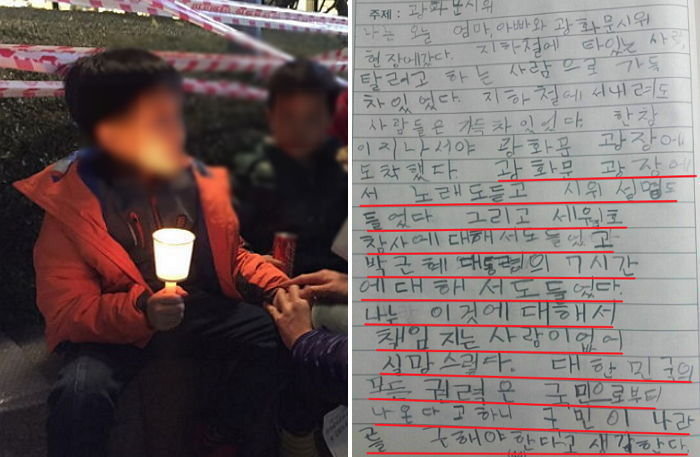 주제: 광화문시위
나는 오늘 엄마,아빠와 광화문시위
현장에갔다. 지하철에 타있는 사람,
탈려고 하는 사람으로 가득
차있었다. 지하철에서내려도
사람들은 가득차있었다. 한참
이지나서야 광화문 광장에
도착했다 광화문 광장에
서 노래도듣고 시위 설명도
들었다 그리고 세월호
참사에대해서도들었고
박근혜 대통령의 7시간
에대해서도들었다.
나는 이것에대해서
책임지는사람이없어
실망스럽다. 대한민국의
모든 권력은 국민으로부터
나온다고하니 국민이 나라
를 구해야한다고생각한다.